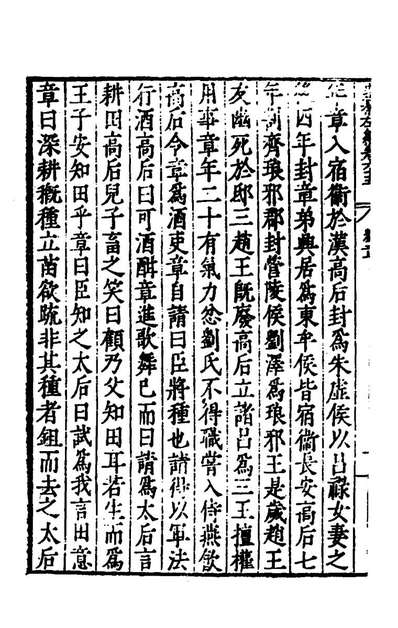 章入宿衛於漢高后封爲朱虛侯以呂祿女妻之
四年封章弟興居爲東牟侯皆宿衛長安高后七
年割齊琅邪郡封營陵侯劉澤爲琅邪王是歲趙王
友幽死於邸三趙王旣廢高后立諸呂爲三王擅權
用事章年二十有氣力忿劉氏不得職嘗入侍燕飲
高后令章爲酒吏章自請曰臣將種也請得以軍法
行酒高后曰可酒酣章進歌舞已而曰請爲太后言
耕田高后兒子畜之笑曰顧乃父知田耳若生而爲
王子安知田乎章曰臣知之太后曰試爲我言田意
章曰深耕穊種立苗欲疏非其種者鉏而去之太后